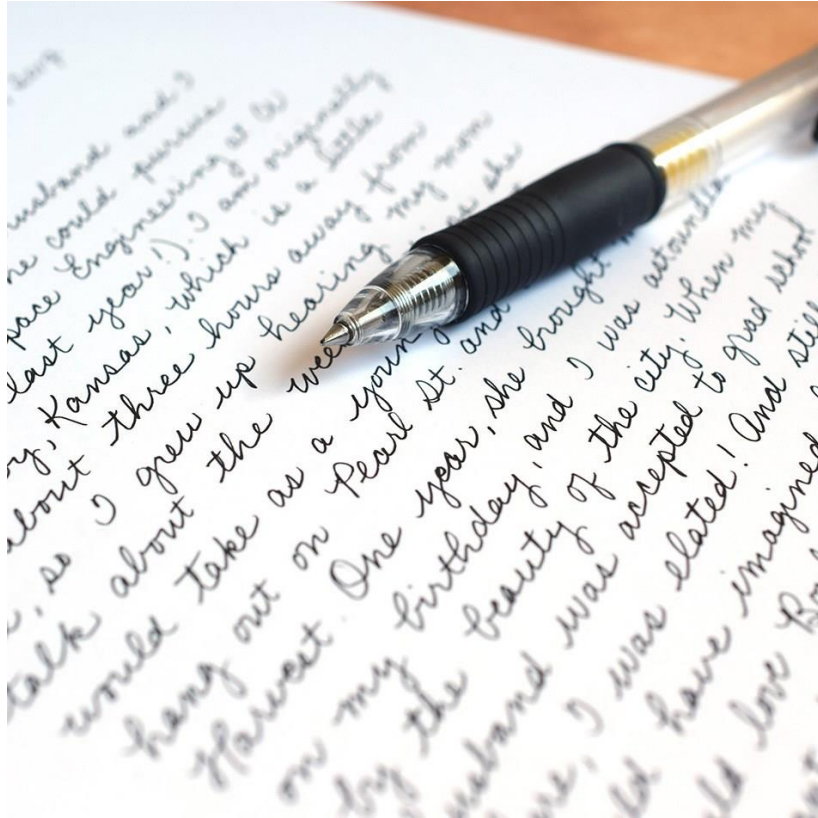 husband and I
he could pursue
space Engineering at CU
last year!). I am originally
, Kansas, which is a little
about three hours away from
, so I grew up hearing my mom
talk about the she
would take as a young
hang out on Pearl St. and
Harvest. One year, she brought
on my birthday, and I was astounded
by the beauty of the city. When my
husband was accepted to grad school
, I was elated! And still
have imagined
love